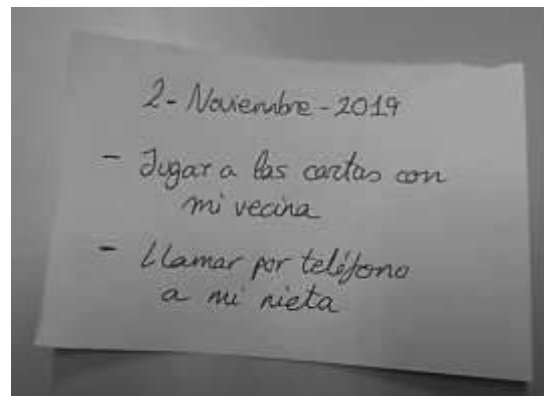 2-Noviembre-2019
- Jugar a las cartas con
mi vecina
- Llamar por teléfono
a mi nieta